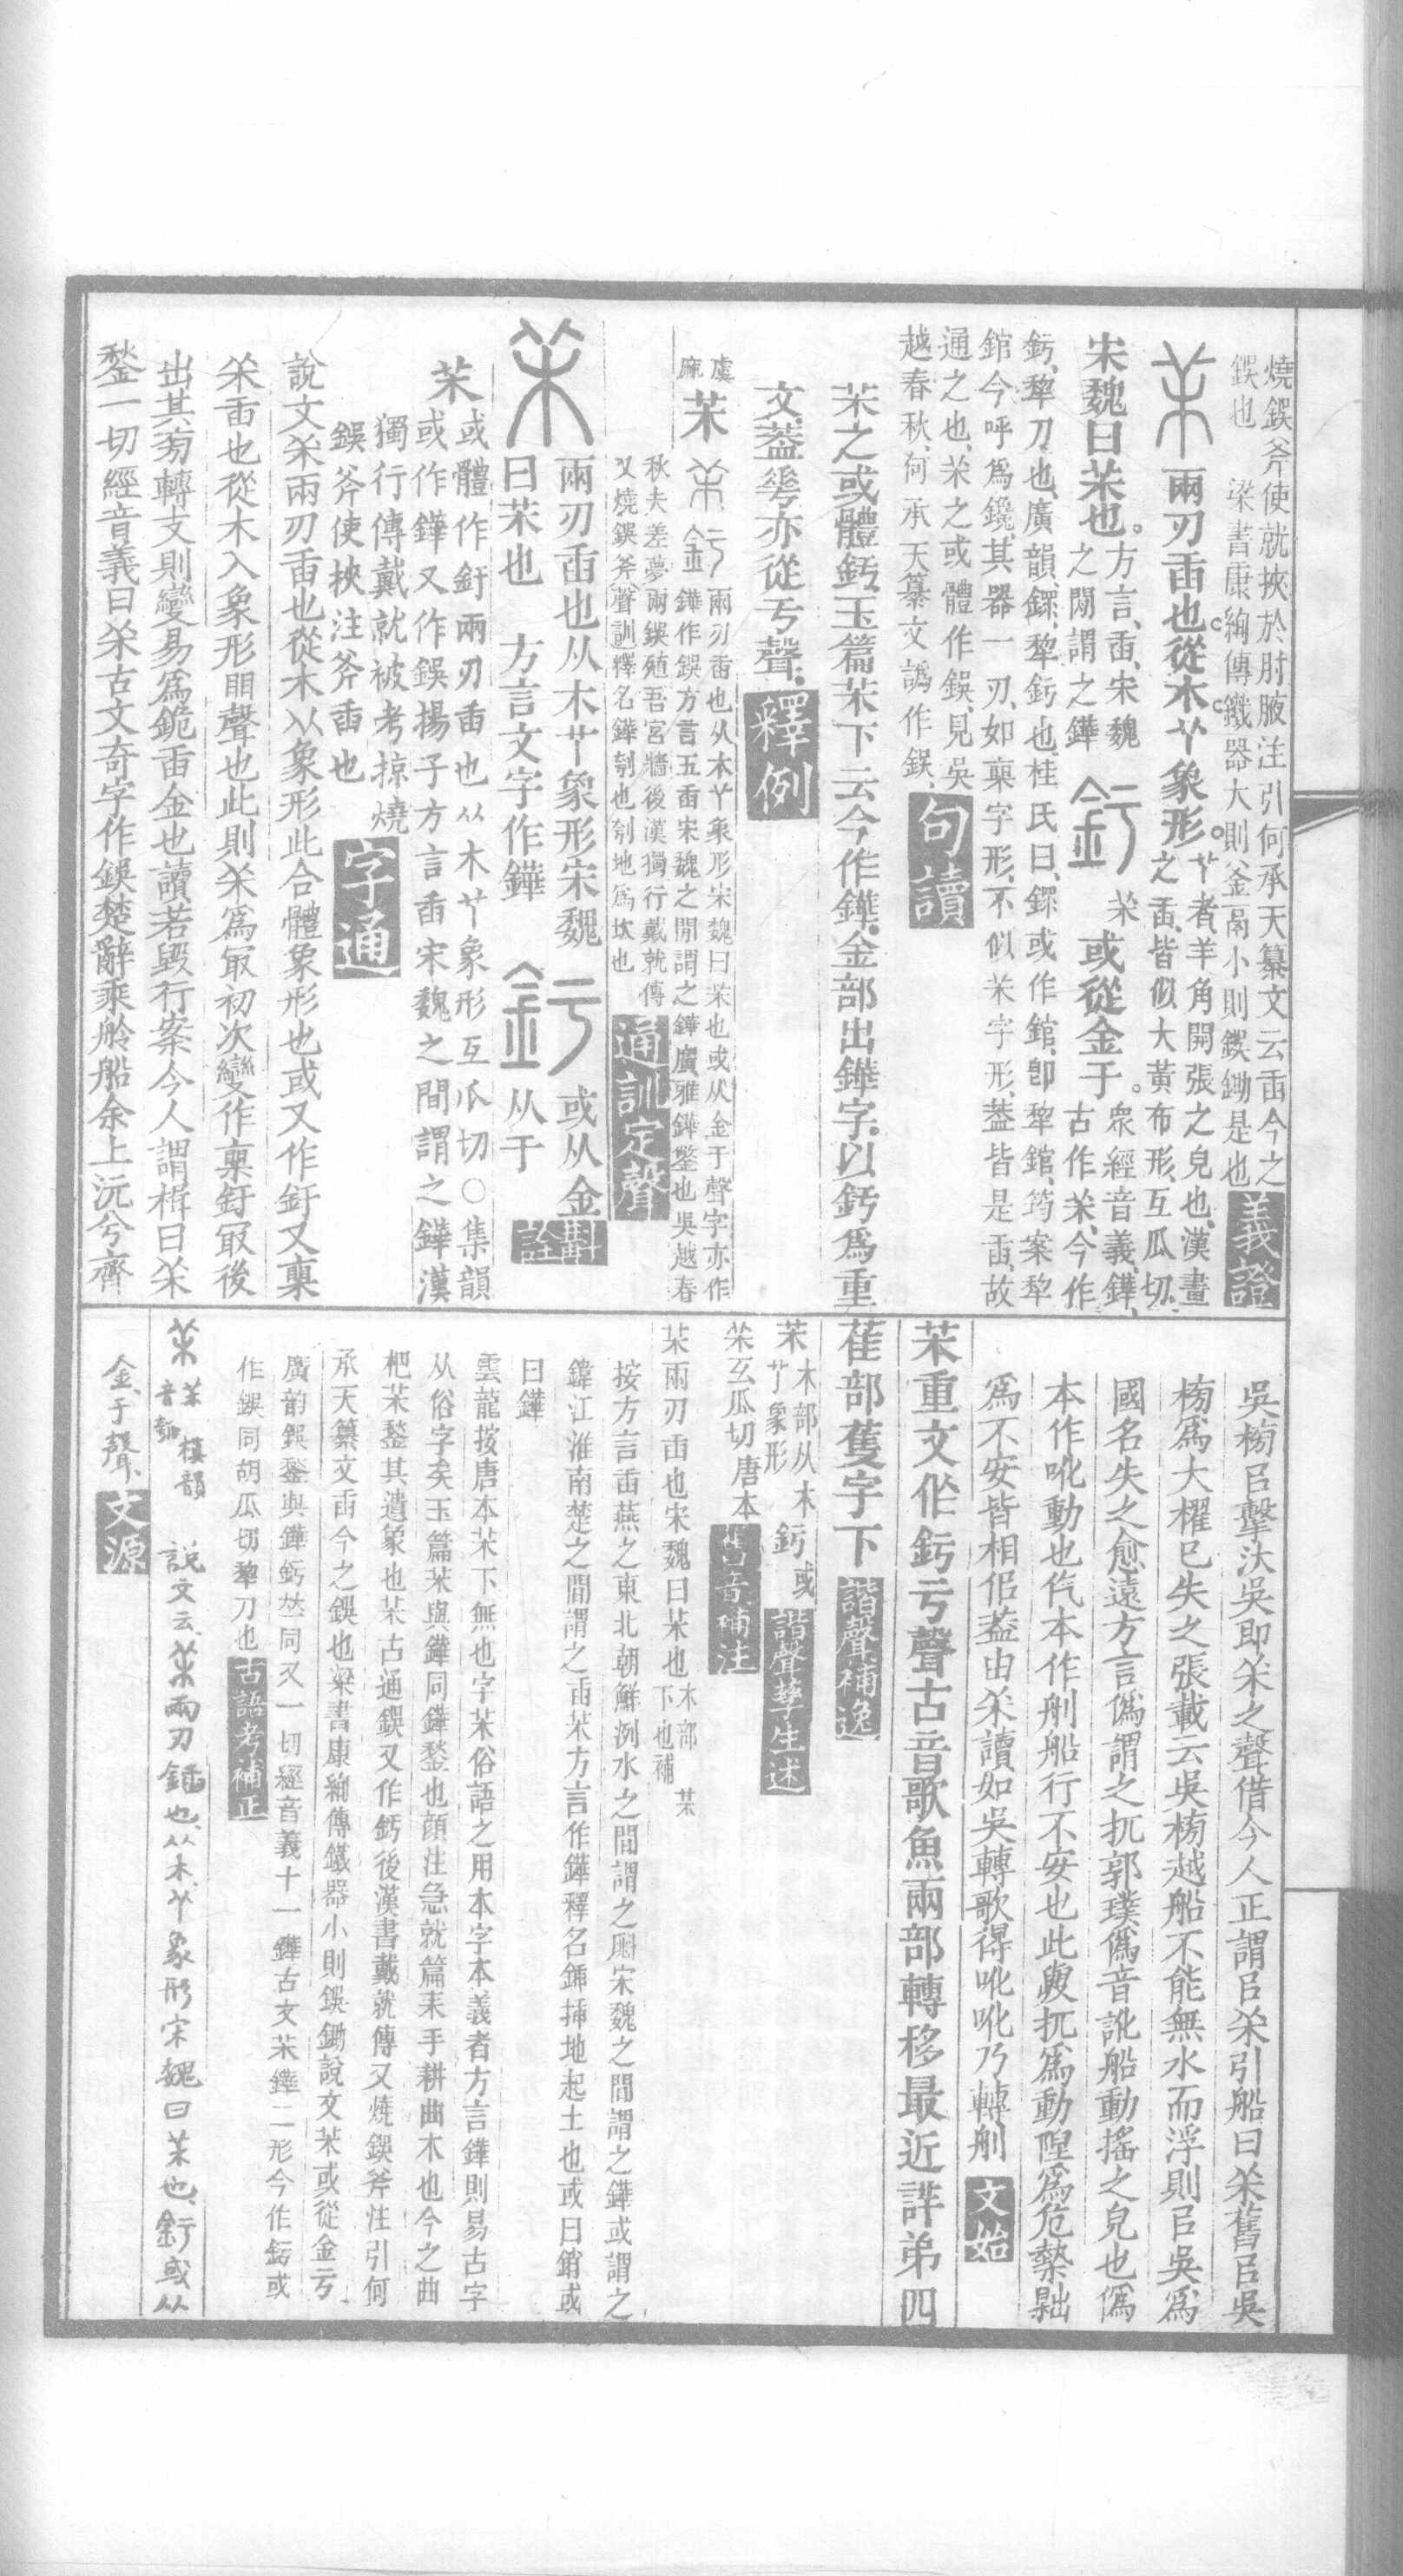 燒鋘斧使就挾於肘腋注引何承天纂文云臿今之
鋘也　梁書康絢傳鐵器大則釜鬲小則鋘鋤是也 義證
兩刃臿也從木𠆉象形
𠆉者羊角開張之皃也漢畫
之臿皆似大黃布形互瓜切
宋魏曰茉也
方言臿宋魏
之閒謂之鏵
釫 茉或從金于
眾經音義鏵
古作茉今作
釫犂刀也廣韻鏍犂釫也桂氏曰鏍或作錧卽犂錧筠案犂
錧今呼爲鑱其器一刃如稟字形不似茉字形葢皆是臿故
通之也茉之或體作鋘見吳
越春秋何承天纂文譌作鋘 句讀
茉之或體釫玉篇茉下云今作鏵金部出鏵字以釫爲重
文葢𠌶亦從亏聲 釋例
虞
茉 兩刃臿也从木𠆉象形宋魏曰茉也或从金于聲字亦作
鏵作鋘方言五臿宋魏之閒謂之鏵廣雅鏵鑿也吳越春
秋夫差夢兩鋘殖吾宮牆後漢獨行戴就傳
又燒鋘斧聲訓釋名鏵刳也刳地爲坎也 通訓定聲
兩刃臿也从木𠆉象形宋魏
曰茉也　方言文字作鏵
釫 或从金
从于 斠詮
茉 或體作釪兩刃臿也从木𠆉象形互瓜切○集韻
或作鏵又作鋘揚子方言臿宋魏之間謂之鏵漢
獨行傳戴就被考掠燒
鋘斧使挾注斧臿也 字通
說文茉兩刃臿也從木以象形此合體象形也或又作釪又稟
茉臿也從木入象形䀠聲也此則茉爲㝡初次變作稟釪㝡後
出其㫄轉文則變易爲鮠臿金也讀若毀行案今人謂楫曰茉
鍫一切經音義曰茉古文奇字作鋘楚辭乘舲船余上沅兮齊
吳榜㠯擊汰吳即茉之聲借今人正謂㠯茉引船曰茉舊㠯吳
榜爲大櫂已失之張載云吳榜越船不能無水而浮則㠯吳爲
國名失之愈遠方言僞謂之扤郭璞僞音訛船動搖之皃也僞
本作吪動也仡本作刖船行不安也此與扤爲動隉爲危槷黜
爲不安皆相侣蓋由茉讀如吳轉歌得吪吪乃轉刖 文始
茉重文作釫亏聲古音歌魚兩部轉移最近詳弟四
萑部蒦字下 諧聲補逸
茉 木部从木
𠆉象形
釫或 諧聲孳生述
茉玄瓜切唐本 舊音補注
茉兩刃臿也宋魏曰茉也
木部茉
下也補
按方言臿燕之東北朝鮮洌水之間謂之𣂁宋魏之間謂之鏵或謂之
鍏江淮南楚之間謂之臿茉方言作鏵釋名鍤插地起土也或曰銷或
曰鏵
雲龍按唐本茉下無也字茉俗語之用本字本義者方言鏵則易古字
从俗字矣玉篇茉與鏵同鏵鍫也顏注急就篇耒手耕曲木也今之曲
杷茉鍫其遺象也茉古通鋘又作釫後漢書戴就傳又燒鋘斧注引何
承天纂文臿今之鋘也梁書康絢傳鐵器小則鋘鋤說文茉或從金亏
廣韵鋘鍫與鏵釫竝同又一切經音義十一鏵古文茉鏵二形今作釫或
作鋘同胡瓜切犂刀也 古語考補正
茉 模韻
說文云茉兩刃鍤也从木𠆉象形宋魏曰茉也釫或从
金于聲 文源